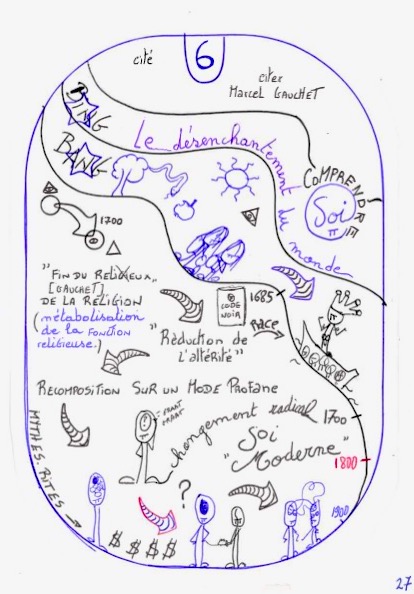 cité
6
citer
Marcel GAUCHET
BING
BANG
Le désenchantement du monde
COMPRENDRE
Soi
1700
"FIN DU RELIGIEUX"
[GAUCHET]
DE LA RELIGION
(métabolisation
de la FONCTION
religieuse.)
CODE
NOIR
1685
RACE
"Réduction de
l'altérité"
RECOMPOSITION SUR UN MODE PROFANE
changement radical
1700
"Soi
Moderne"
1800
MYTHES. RITES
?
1900
$ $ $ $
27